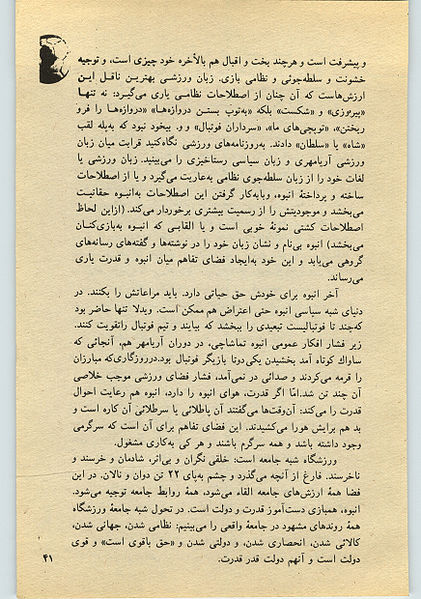 و پیشرفت است و هرچند بخت و اقبال هم بالأخره خود چیزی است، و توجیه
خشونت و سلطه‌جوئی و نظامی بازی. زبان ورزشی بهترین ناقل این
ارزش‌هاست که آن چنان از اصطلاحات نظامی یاری می‌گیرد: نه تنها
«پیروزی» و «شکست» بلکه «به‌توپ بستن دروازه‌ها» «دروازه‌ها را فرو
ریختن»، «توپچی‌های ما»، «سرداران فوتبال» و و. بیخود نبود که به‌پله لقب
«شاه» یا «سلطان» دادند. به‌روزنامه‌های ورزشی نگاه‌کنید قرابت میان زبان
ورزشی آریامهری و زبان سیاسی رستاخیزی را می‌بینید. زبان ورزشی یا
لغات خود را از زبان سلطه‌جوی نظامی به‌عاریت می‌گیرد و یا از اصطلاحات
ساخته و پرداختهٔ انبوه، وبابه‌کار گرفتن این اصطلاحات به‌انبوه حقانیت
می‌بخشد و موجودیتش را از رسمیت بیشتری برخوردار می‌کند. (ازاین لحاظ
اصطلاحات کشتی نمونهٔ خوبی است و یا القابی که انبوه به‌بازی‌کنان
می‌بخشد) انبوه بی‌نام و نشان زبان خود را در نوشته‌ها و گفته‌های رسانه‌های
گروهی می‌یابد و این خود به‌ایجاد فضای تفاهم میان انبوه و قدرت یاری
می‌رساند.
آخر انبوه برای خودش حق حیاتی دارد. باید مراعاتش را بکنند. در
دنیای شبه سیاسی انبوه حتی اعتراض هم ممکن است. ویدلا تنها حاضر بود
که‌چند تا فوتبالیست تبعیدی را ببخشد که بیایند و تیم فوتبال راتقویت کنند.
زیر فشار افکار عمومی انبوه تماشاچی، در دوران آریامهر هم، آنجائی که
ساواك کوتاه آمد بخشیدن یکی‌دوتا بازیگر فوتبال بود.درروزگاری‌که مبارزان
را قرمه می‌کردند و صدائی در نمی‌آمد، فشار فضای ورزشی موجب خلاصی
آن چند تن شد.امّا اگر قدرت، هوای انبوه را دارد، انبوه هم رعایت احوال
قدرت را می‌کند: آن‌وقت‌ها می‌گفتند آن باطلائی یا سرطلائی آن کاره است و
بد هم برایش هورا می‌کشیدند. این فضای تفاهم برای آن است که سرگرمی
وجود داشته باشد و همه سرگرم باشند و هر کی به‌کاری مشغول.
ورزشگاه شبه جامعه است: خلقی نگران و بی‌اثر، شادمان و خرسند و
ناخرسند. فارغ از آنچه می‌گذرد و چشم به‌پای ۲۲ تن دوان و نالان. در این
فضا همهٔ ارزش‌های جامعه القاء می‌شود، همهٔ روابط جامعه توجیه می‌شود.
انبوه، همبازی دست‌آموز قدرت و دولت است. در تحول شبه جامعهٔ ورزشگاه
همهٔ روندهای مشهود در جامعهٔ واقعی را می‌بینیم: نظامی شدن، جهانی شدن،
کالائی شدن، انحصاری شدن، و دولتی شدن و «حق باقوی است» و قوی
دولت است و آنهم دولت قدر قدرت.
۴۱